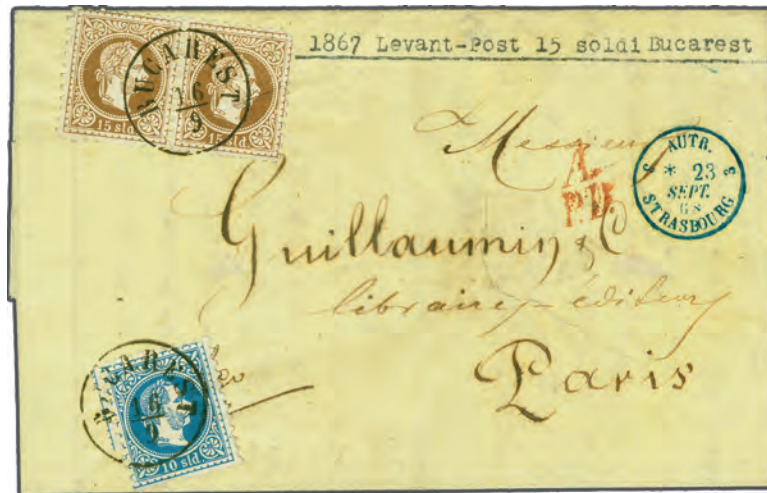 1867 Levant-Post 15 soldi Bucarest
BUCAREST
16
9
15 sld.
15 sld.
Messieurs
A.
P.D.
AUTR.
3 * 23 3
SEPT.
68
STRASBOURG
Guillaumin & C
libraires-éditeurs
Paris
BUCAREST
16
9
10 sld.